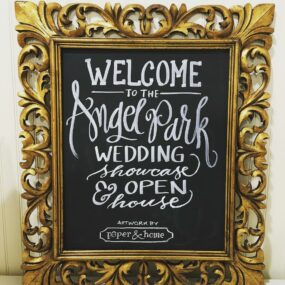 WELCOME
TO THE
Angel Park
WEDDING
showcase
& OPEN
house
ARTWORK BY
paper & home